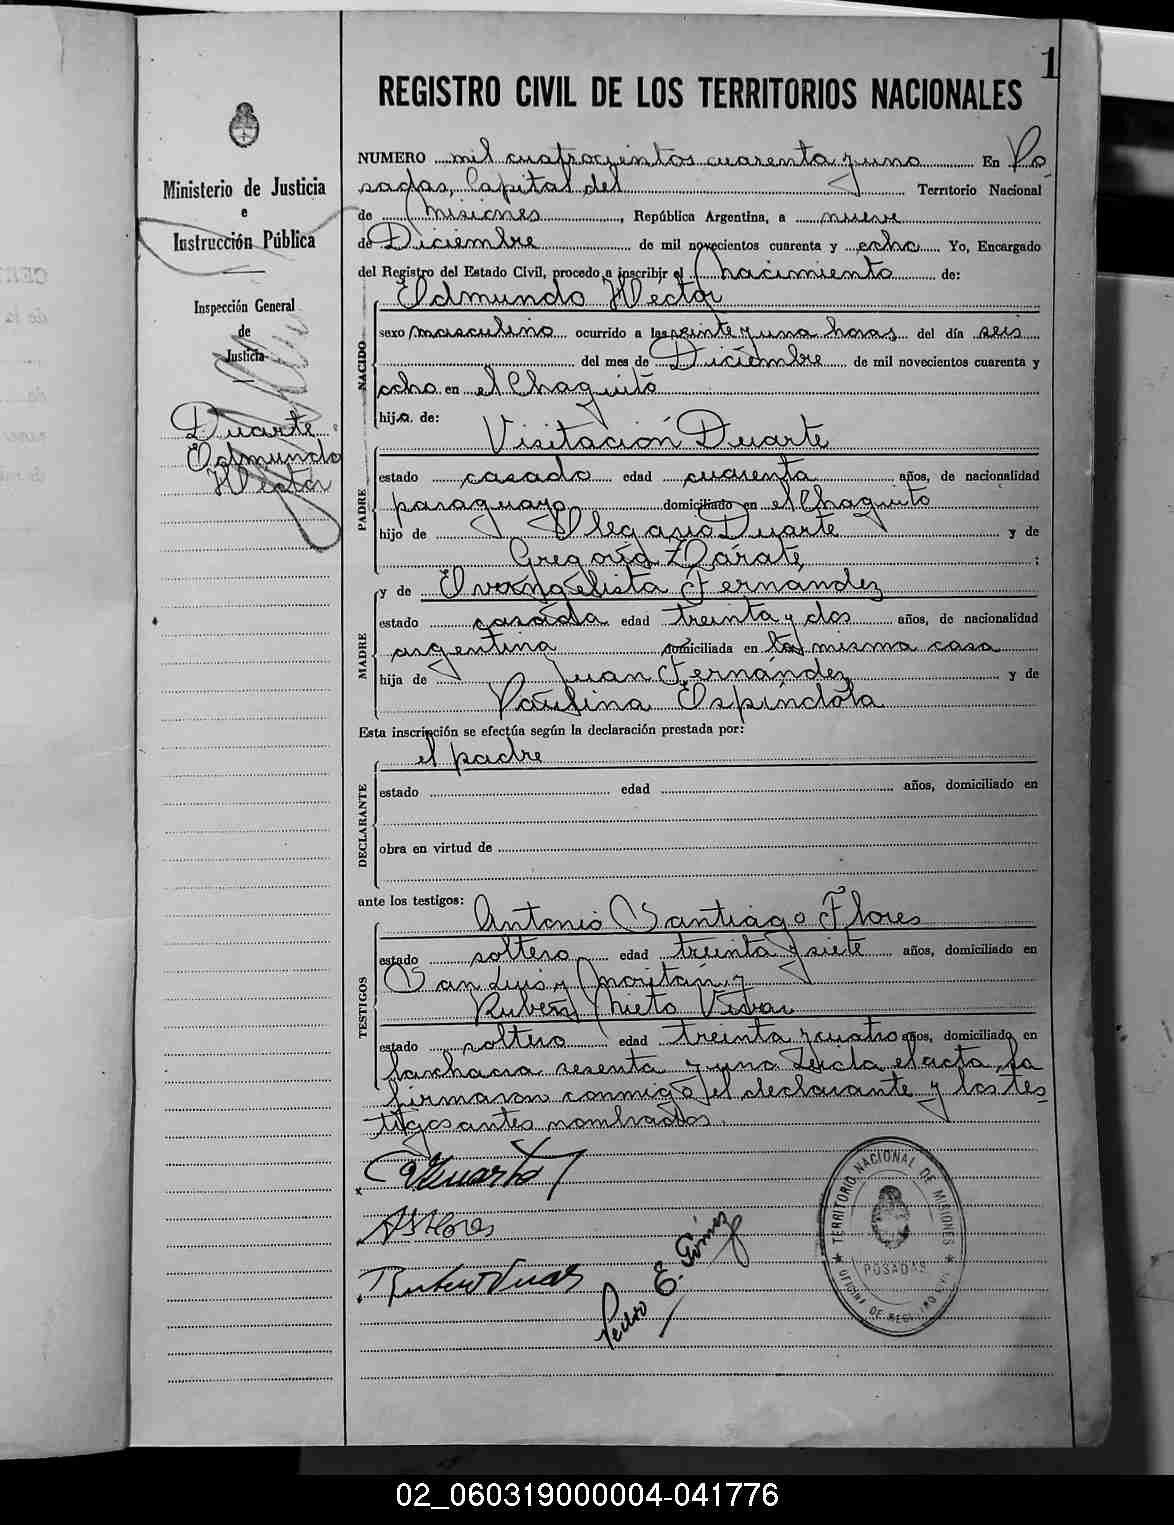 1
REGISTRO CIVIL DE LOS TERRITORIOS NACIONALES
Ministerio de Justicia
e
Instrucción Pública
Inspección General
de
Justicia
Duarte
Edmundo
Héctor
NUMERO mil cuatrocientos cuarenta y uno En Po
sadas, Capital del Territorio Nacional
de Misiones, República Argentina, a nueve
de Diciembre de mil novecientos cuarenta y ocho Yo, Encargado
del Registro del Estado Civil, procedo a inscribir el nacimiento de:
NACIDO
Edmundo Héctor
sexo masculino ocurrido a las veinte y una horas del día seis
del mes de Diciembre de mil novecientos cuarenta y
ocho en el Chaquito
hijo de:
PADRE
Visitación Duarte
estado casado edad cuarenta años, de nacionalidad
paraguayo domiciliado en el Chaquito
hijo de Olegario Duarte y de
Gregoria Zárate ;
MADRE
y de Evangelista Fernandez
estado casada edad treinta y dos años, de nacionalidad
argentina domiciliada en la misma casa
hija de Juan Fernández y de
Paulina Espíndola
Esta inscripción se efectúa según la declaración prestada por:
DECLARANTE
el padre
estado edad años, domiciliado en
obra en virtud de
ante los testigos:
TESTIGOS
Antonio Santiago Flores
estado soltero edad treinta y siete años, domiciliado en
San Luis y Moritán, y
Rubén Nieto Vivar
estado soltero edad treinta y cuatro años, domiciliado en
la chacra sesenta y uno Leída el acta, la
firmaron conmigo el declarante y los tes-
tigos antes nombrados.
VDuarte
ASFlores
Pedro E. Gómez
TERRITORIO NACIONAL DE MISIONES
POSADAS
OFICINA DE REGISTRO CIVIL
02_060319000004-041776